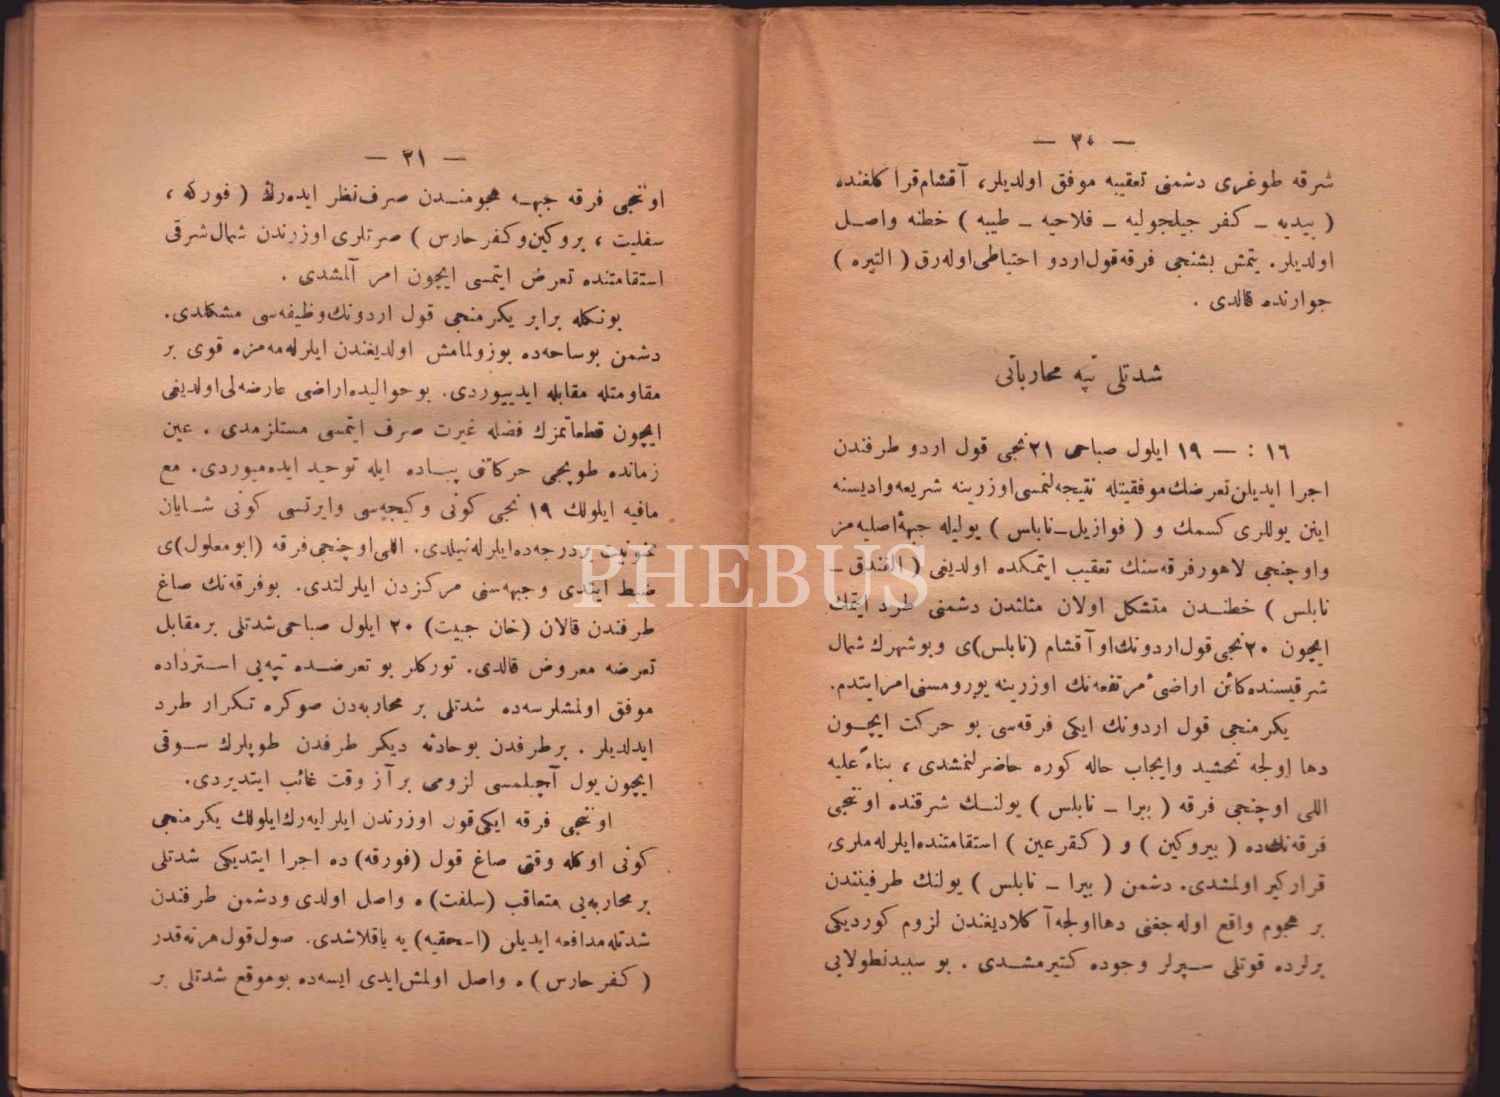 — ٣٠ —
شرقه طوغری دشمنی تعقیبه موفق اولدیلر، آقشام قراکلغنده
( بیدیه ـ کفر جیلجولیه ـ فلاحیه ـ طیبه ) خطنه واصل
اولدیلر. یتمش بشنجی فرقه قول اردو احتیاطی اوله رق ( التیره )
جوارنده قالدی .
شدتلی تپه محارباتی
١٦ : — ١٩ ایلول صباحی ٢١ نجی قول اردو طرفندن
اجرا ایدیلن تعرضك موفقیتله نتیجه لنمسی اوزرینه شریعه وادیسنه
اینن یوللری کسمك و ( فوازیل ـ نابلس ) یولیله جبهۀ اصلیه مز
واوچنجی لاهور فرقه سنك تعقیب ایتمکده اولدیغی ( الفندق ـ
نابلس ) خطندن متشکل اولان مثلثدن دشمنی طرد ایتمك
ایچون ٢٠ نجی قول اردونك او آقشام (نابلس)ی و بوشهرك شمال
شرقیسنده کائن اراضیٔ مرتفعه نك اوزرینه یورومسنی امر ایتدم.
یکرمنجی قول اردونك ایکی فرقه سی بو حرکت ایچون
دها اولجه تحشید وایجاب حاله کوره حاضرلنمشدی ، بناءً علیه
اللی اوچنجی فرقه ( بیرا ـ نابلس ) یولنك شرقنده اوننجی
فرقه نك ده ( بیروکین ) و ( کفرعین ) استقامتنده ایلرله ملری
قرارکیر اولمشدی. دشمن ( بیرا ـ نابلس ) یولنك طرفیندن
بر هجوم واقع اوله جغنی دها اولجه آکلادیغندن لزوم کوردیکی
یرلرده قوتلی سپرلر وجوده کتیرمشدی . بو سببدنطولایی
— ٢١ —
اوننجی فرقه جبهه هجومندن صرف نظر ایده رك ( فورکه ،
سفلیت ، بروکین و کفر حارس ) صرتلری اوزرندن شمال شرقی
استقامتنده تعرض ایتمسی ایچون امر آلمشدی .
بونکله برابر یکرمنجی قول اردونك وظیفه سی مشکلدی.
دشمن بوساحه ده بوزولمامش اولدیغندن ایلرله مه مزه قوی بر
مقاومتله مقابله ایدییوردی. بو حوالیده اراضی عارضه لی اولدیغی
ایچون قطعاتمزك فضله غیرت صرف ایتمسی مستلزمدی . عین
زمانده طوپجی حرکاتنی پیاده ایله توحید ایده میوردی. مع
مافیه ایلولك ١٩ نجی کونی و کیجه سی وایرتسی کونی شایان
ممنونیت بر درجه ده ایلرله نیلدی. اللی اوچنجی فرقه (ابو معلول)ی
ضبط ایتدی و جبهه سنی مرکزدن ایلرلتدی. بو فرقه نك صاغ
طرفندن قالان (خان جبیت) ٢٠ ایلول صباحی شدتلی بر مقابل
تعرضه معروض قالدی. تورکلر بو تعرضده تپه یی استرداده
موفق اولمشلرسه ده شدتلی بر محاربه دن صوکره تکرار طرد
ایدلدیلر . بر طرفدن بو حادثه دیکر طرفدن طوپلرك سوقی
ایچون یول آچیلمسی لزومی بر آز وقت غائب ایتدیردی.
اوننجی فرقه ایکی قول اوزرندن ایلرلیه رك ایلولك یکرمنجی
کونی اوکله وقتی صاغ قول (فورقه) ده اجرا ایتدیکی شدتلی
بر محاربه یی متعاقب (سلفت) ه واصل اولدی و دشمن طرفندن
شدتله مدافعه ایدیلن (اسحقیه) یه یاقلاشدی. صول قول هر نه قدر
( کفر حارس ) ه واصل اولمش ایدی ایسه ده بو موقع شدتلی بر
PHEBUS